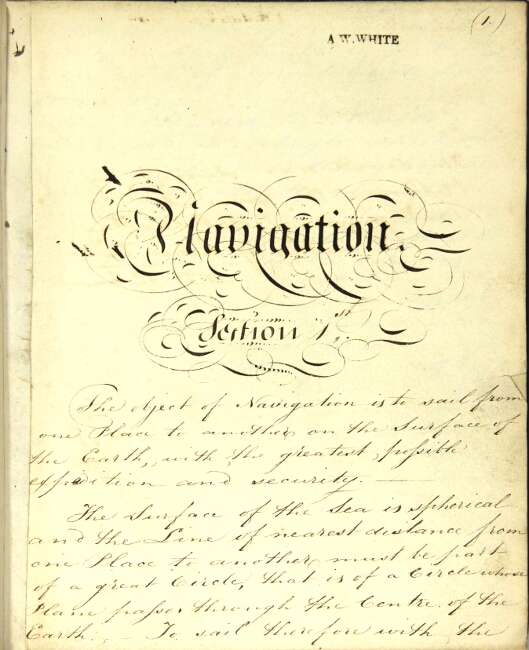 (1.)
A. W. WHITE
Navigation.
Section 1st.
The object of Navigation is to sail from
one Place to another on the Surface of
the Earth, with the greatest possible
expedition and security. —
The Surface of the Sea is spherical
and the Line of nearest distance from
one Place to another must be part
of a great Circle, that is of a Circle whose
Plane passes through the Centre of the
Earth. — To sail therefore with the